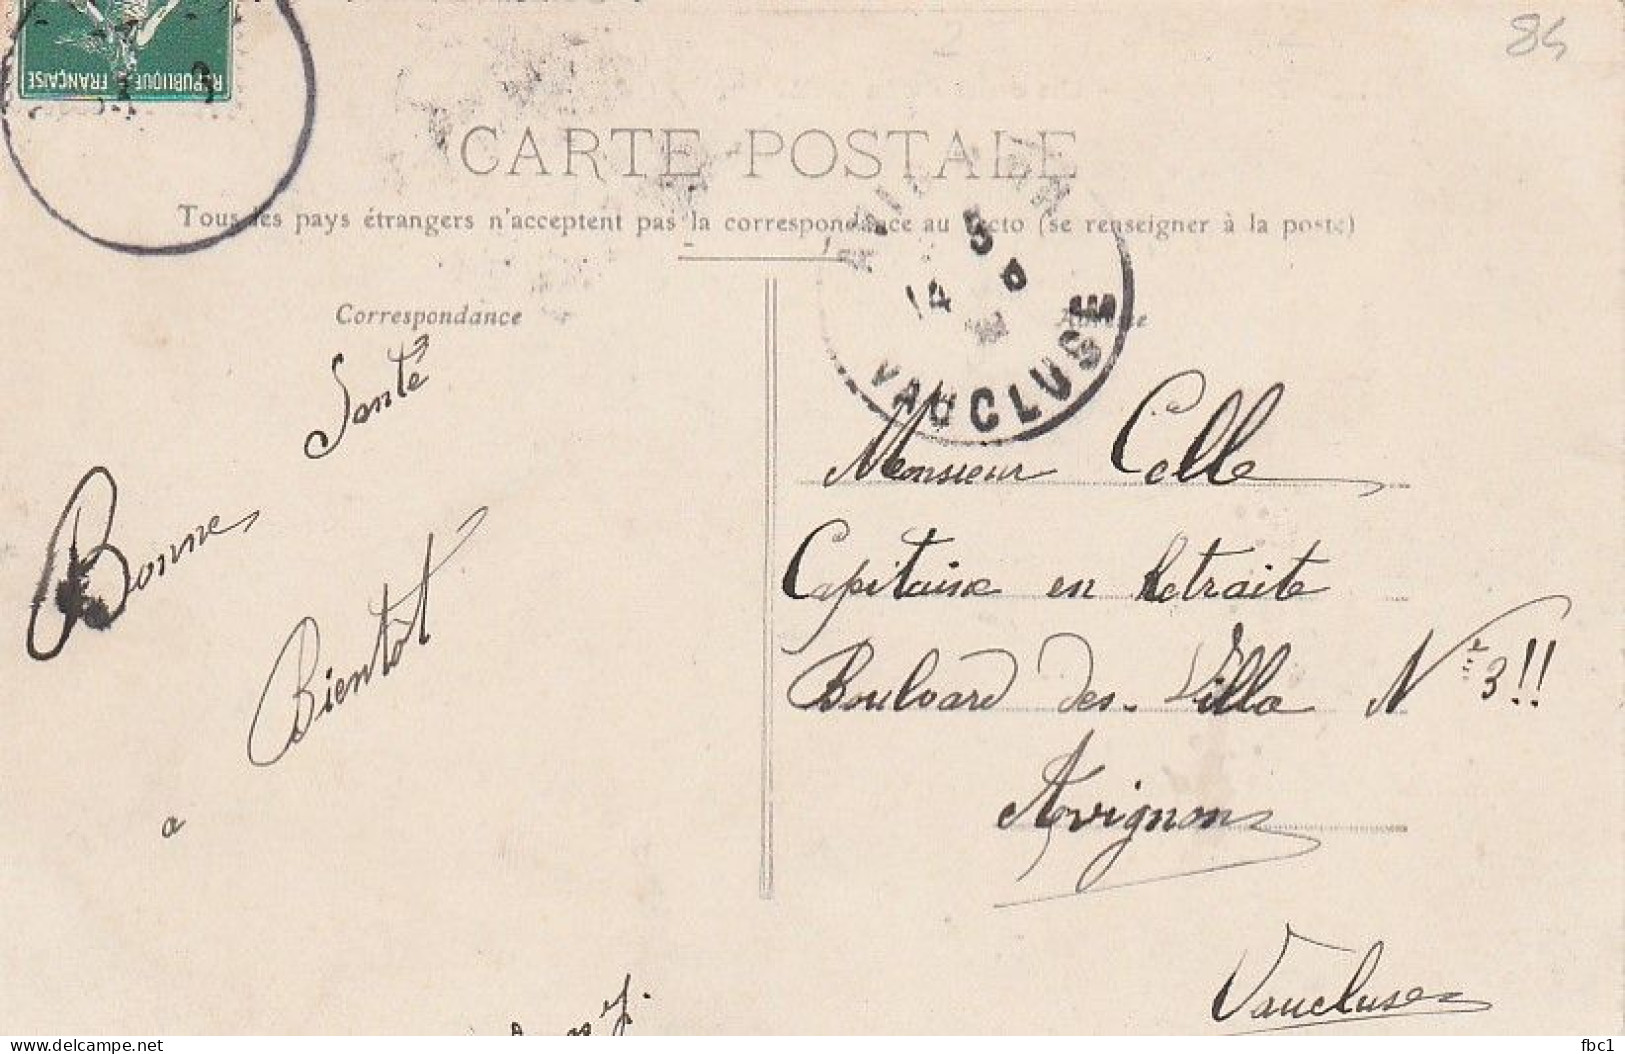 84
RÉPUBLIQUE FRANÇAISE
CARTE POSTALE
Tous les pays étrangers n'acceptent pas la correspondance au recto (se renseigner à la poste)
Correspondance
Adresse
5
14
VAUCLUSE
Bonne Santé
a Bientôt
Monsieur Colle
Capitaine en Retraite
Boulvard des Villa N 3!!
Avignon
Vaucluse
delcampe.net
fbc1